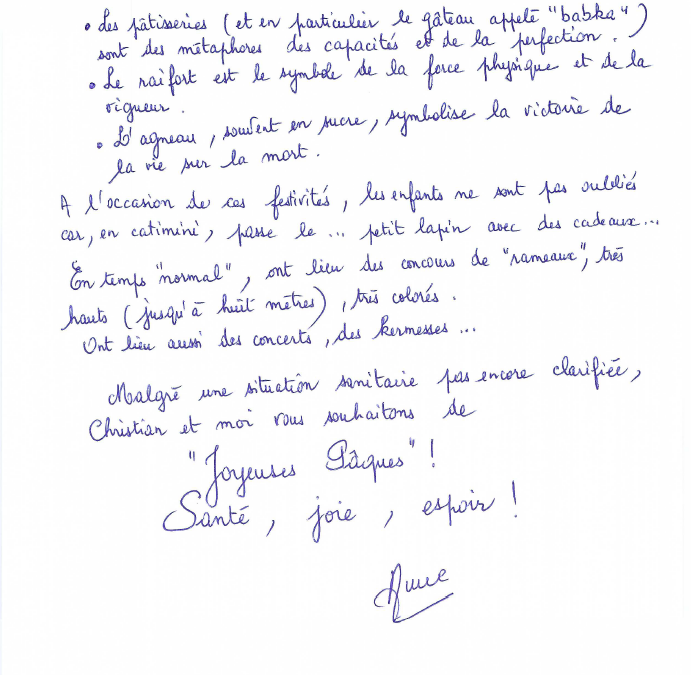 • Les pâtisseries (et en particulier le gâteau appelé "babka")
sont des métaphores des capacités et de la perfection.
• Le raifort est le symbole de la force physique et de la
vigueur.
• L'agneau, souvent en sucre, symbolise la victoire de
la vie sur la mort.
A l'occasion de ces festivités, les enfants ne sont pas oubliés
car, en catimini, passe le ... petit lapin avec des cadeaux...
En temps "normal", ont lieu des concours de "rameaux", très
hauts (jusqu'à huit mètres), très colorés.
Ont lieu aussi des concerts, des kermesses ...
Malgré une situation sanitaire pas encore clarifiée,
Christian et moi vous souhaitons de
"Joyeuses Pâques" !
Santé, joie, espoir !
Anne